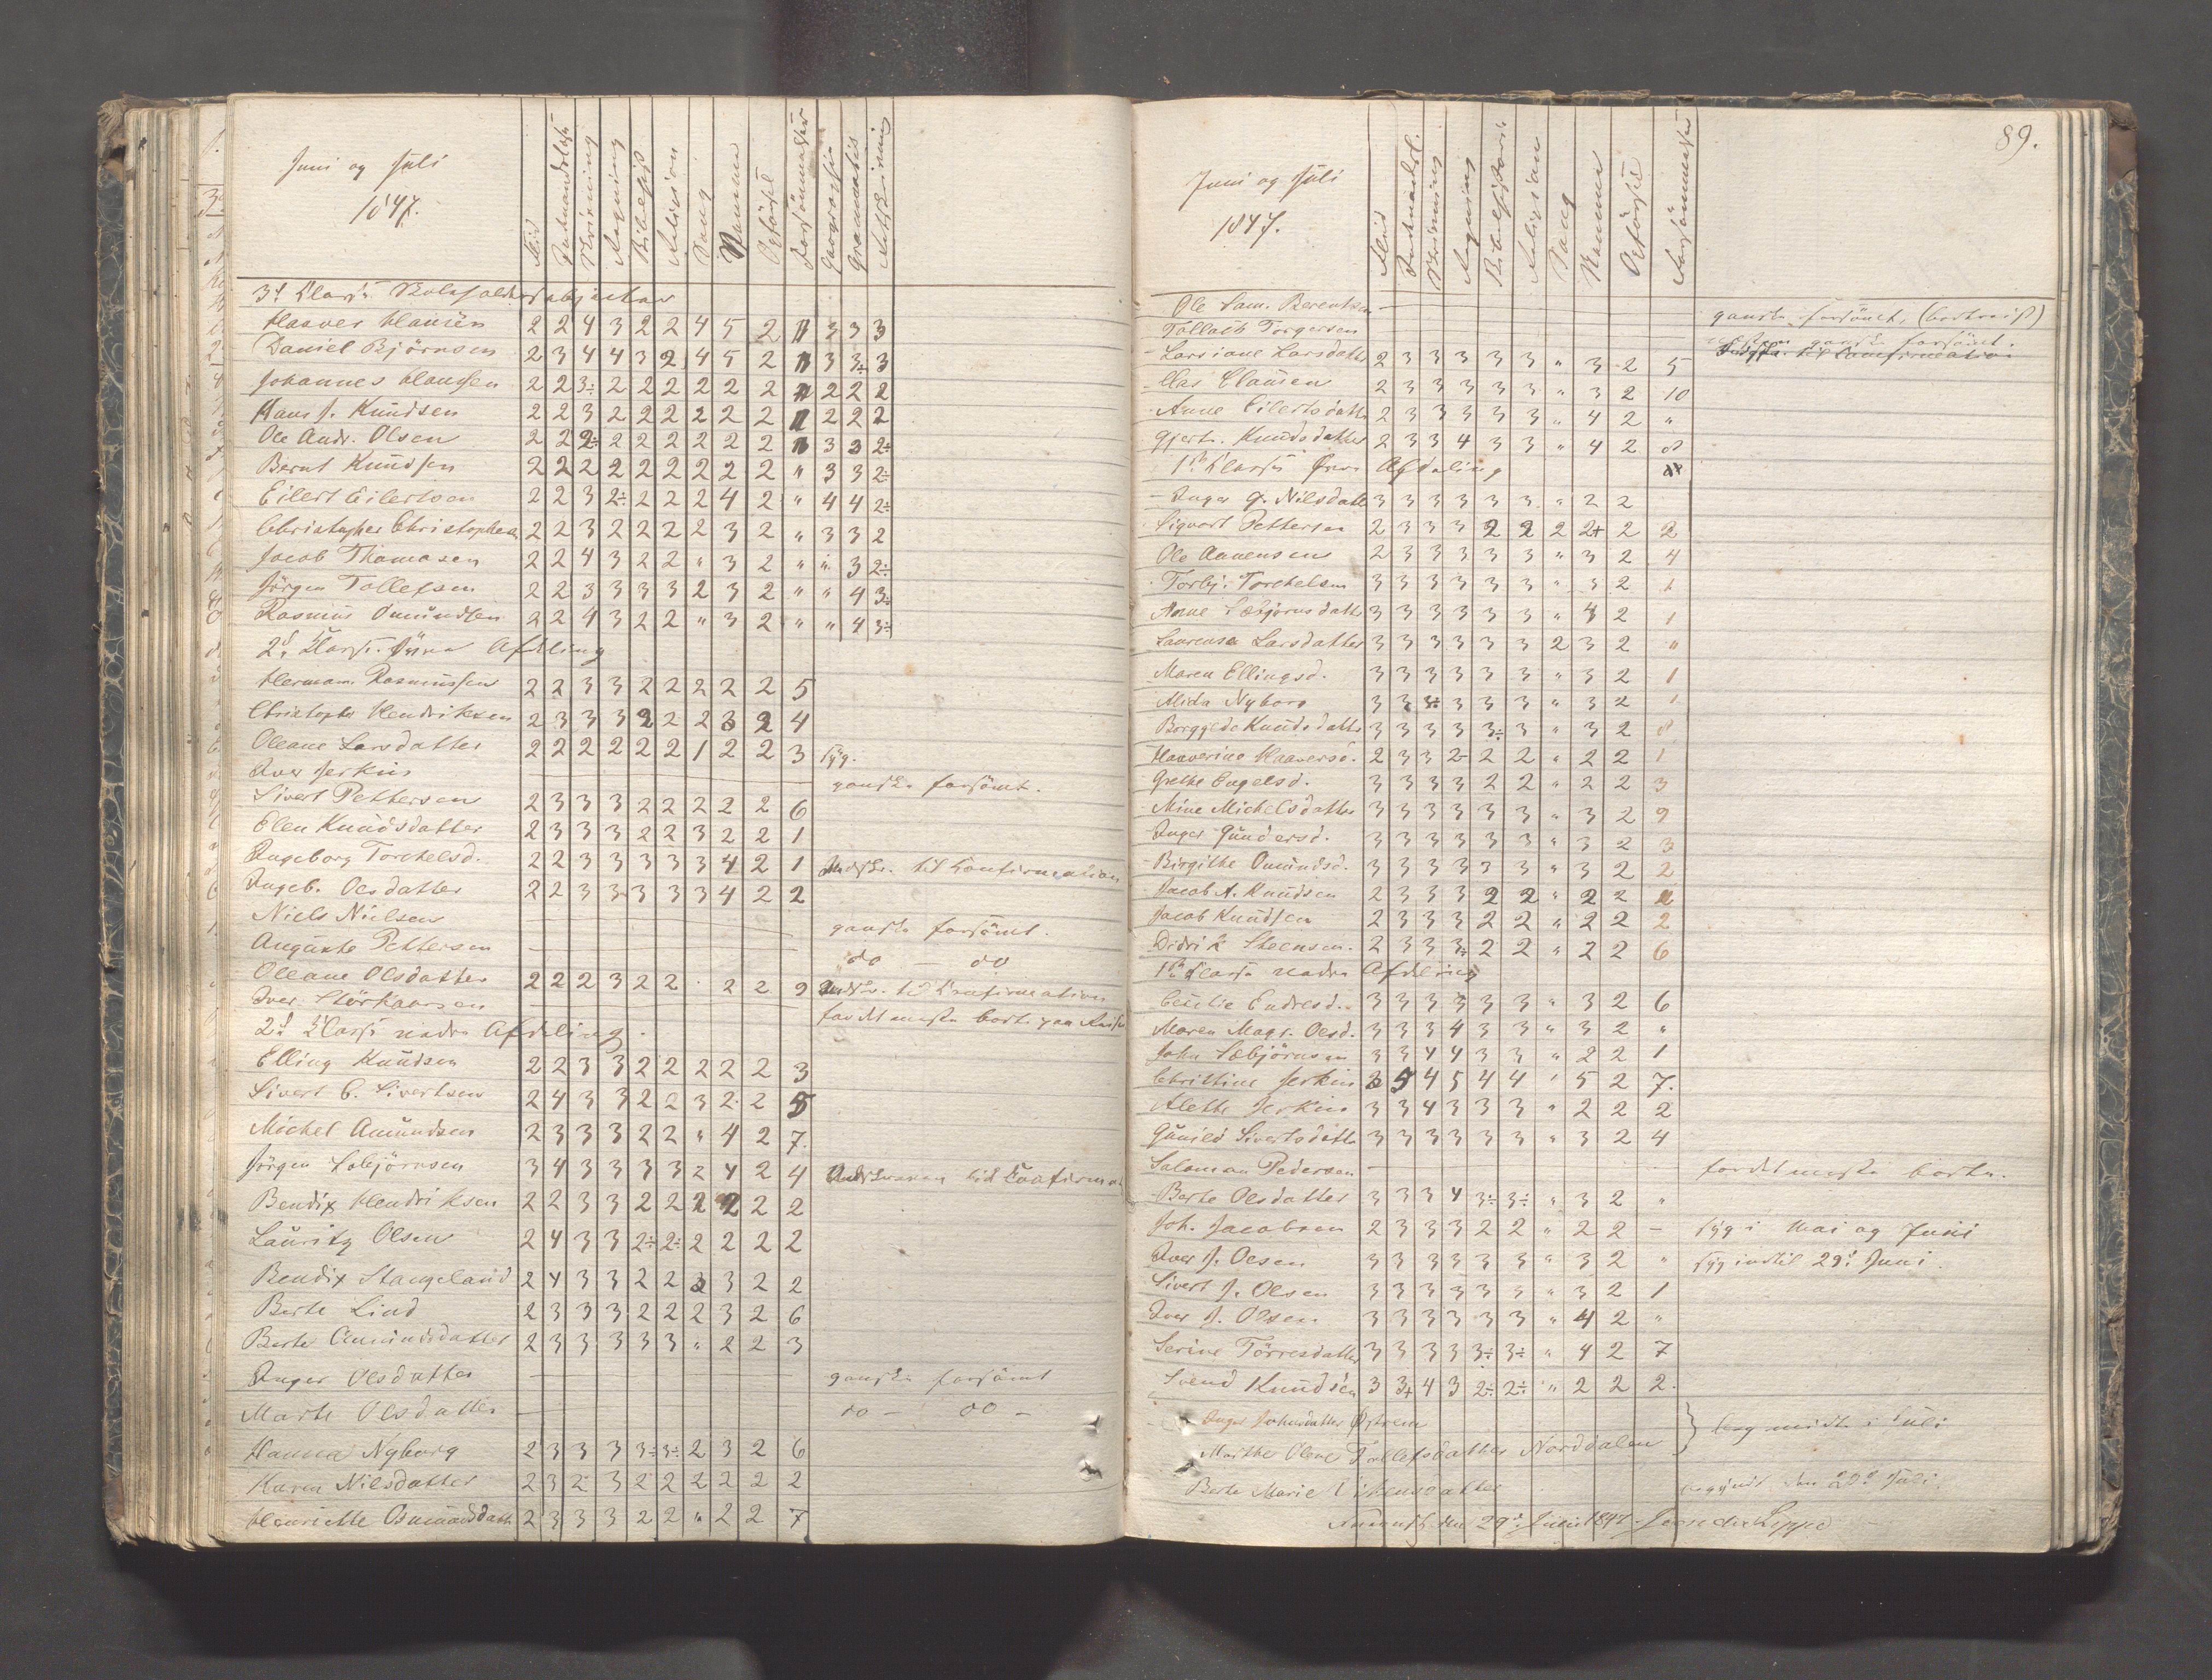 Juni og Juli
1847.
Flid
Skrivning
Regning
Religion
Sang
Geographie
Grammatik
Retskrivning
3d Klasse
Haaver Hansen 2 2 4 3 2 2 4 5 2 11 3 3 3
Daniel Björnsen 2 3 4 4 3 2 4 5 2 11 3 3+ 3
Johannes Clausen 2 2 3÷ 2 2 2 2 2 2 11 2 2 2
Hans J. Knudsen 2 2 3 2 2 2 2 2 2 11 2 2 2
Ole Andr. Olsen 2 2 2÷ 2 2 2 2 2 2 3 3 2÷
Bernt Knudsen 2 2 2 2 2 2 2 2 2 " 3 3 2÷
Eilert Eilertsen 2 2 3 2÷ 2 2 2 4 2 " 4 4 2÷
Christopher Christophersen 2 2 3 2 2 2 2 3 2 " 3 3 2
Jacob Thomasen 2 2 4 3 2 2 " 3 2 " " 3 2÷
Jörgen Tollefsen 2 2 3 3 3 3 2 3 2 " " 4 3÷
Rasmus Omundsen 2 2 4 3 2 2 " 3 2 " " 4 3÷
2d Klasse övre Afdeling
Herman Rasmussen 2 2 3 3 2 2 2 2 2 5
Christopher Hendriksen 2 3 3 3 2 2 2 3 2 4
Oleane Larsdatter 2 2 2 2 2 2 1 2 2 3 syg.
Iver Jerkin — ganske forsömt.
Sivert Pettersen 2 3 3 3 2 2 2 2 2 6
Elen Knudsdatter 2 3 3 3 2 2 3 2 2 1
Ingeborg Torchelsd. 2 2 3 3 3 3 3 4 2 1 Indskr. til Confirmation
Ingeb. Olsdatter 2 2 3 3 3 3 3 4 2 2
Niels Nielsen — ganske forsömt.
Auguste Pettersen — do — do
Oleane Olsdatter 2 2 2 3 2 2 . 2 2 9 Indskr. til Confirmation
Iver — for det meste borte paa
2d Klasse nedre Afdeling.
Elling Knudsen 2 2 3 3 2 2 2 2 2 3
Sivert C. Sivertsen 2 4 3 3 2 2 3 2 2 5
Michel Amundsen 2 3 3 3 2 2 " 4 2 7.
Jörgen Sebjörnsen 3 4 3 3 3 3 2 4 2 4 Indskreven til Confirmat
Bendix Hendriksen 2 2 3 3 2 2 2 2 2 2
Lauritz Olsen 2 4 3 3 2÷ 2÷ 2 2 2 2
Bendix Stangeland 2 4 3 3 2 2 3 3 2 2
Berte Lind 2 3 3 3 2 2 2 3 2 6
Berte Omundsdatter 2 3 3 3 3 3 " 2 2 3
Inger Olsdatter — ganske forsömt
Marte Olsdatter — do — do —
Hanna Nyborg 2 3 3 3 3÷ 3÷ 2 3 2 6
Karen Nilsdatter 2 3 2 3 2 2 2 2 2 2
Henriette Osmundsdatt 2 3 3 3 2 2 " 2 2 7
89.
Juni og Juli
1847.
Flid
Skrivning
Regning
Bibelhistorie
Religion
Sang
Ole Sam. Berentsen —
Tollach Torgersen — ganske forsömt, (bortreist)
ganske forsömt.
Larsiane Larsdatter 2 3 3 3 3 3 " 3 2 5 Indskr. til Confirmation
Clausen 2 3 3 3 3 3 " 3 2 10
Anne Eilertsdatter 2 3 3 3 3 3 " 4 2 "
Gjert. Knudsdatter 2 3 3 4 3 3 " 4 2 8
1ste Klasse övre Afdeling
Inger G. Nilsdatt 3 3 3 3 3 3 " 2 2
Sigvart Pettersen 2 3 3 3 2 2 2 2+ 2 2
Ole Aanensen 2 3 3 3 3 3 " 3 2 4
Torbj. Torchelsen 3 3 3 3 3 3 " 3 2 1
Anne Sebjörnsdatter 3 3 3 3 3 3 " 4 2 1
Laurense Larsdatter 3 3 3 3 3 3 2 3 2 "
Maren Ellingsd. 3 3 3 3 3 3 " 3 2 1
Alida Nyborg 3 3 3÷ 3 3 3 " 3 2 1
Borggede Knudsdatter 3 3 3 3 3÷ 3 " 3 2 8
Haaverine Haaversd. 2 3 3 2 2 2 " 2 2 1
Grethe Engelsd. 3 3 3 3 2 2 " 2 2 3
Mine Michelsdatter 3 3 3 3 3 3 " 3 2 9
Inger Gundersd. 3 3 3 3 3 3 " 3 2 3
Birgithe Omundsd. 3 3 3 3 3 3 " 3 2 2
Jacob A. Knudsen 2 3 3 3 2 2 " 2 2 2
Jacob Knudsen 2 3 3 3 2 2 " 2 2 2
Didrik Steensen. 2 3 3 3÷ 2 2 " 2 2 6
1ste Klasse nedre Afdeling
Cecilie Endresd. 3 3 3 3 3 3 " 3 2 6
Maren Magr. Olsd. 3 3 3 4 3 3 " 3 2 "
John Sebjörnsen 3 3 4 4 3 3 " 2 2 1
Christine Jerkin 3 5 4 5 4 4 ' 5 2 7.
Alette Jerkin 3 3 4 3 3 3 " 2 2 2
Gunild Sivertsdatter 3 3 3 3 3 3 " 3 2 4
Saloman Pedersen — for det meste borte.
Berte Olsdatter 3 3 3 4 3÷ 3÷ " 3 2 "
Joh. Jacobsen 2 3 3 3 2 2 " 2 2 — syg i Mai og Juni
Iver J. Olsen 3 3 3 3 3 3 " 3 2 " syg indtil 29d Juni.
Sivert J. Olsen 3 3 3 3 3 3 " 3 2 1
Iver J. Olsen 3 3 3 3 3 3 " 4 2 "
Serine Törresdatter 3 3 3 3 3÷ 3÷ " 4 2 7
Svend Knudsen 3 3+ 4 3 2÷ 2÷ " 2 2 2.
Inger Johnsdatter Östrem
Marthe Olene Tollefsdatter Norddalen } begyndte i Juli
Berte Marie begyndt den 20d Juli.
den 29d 1847